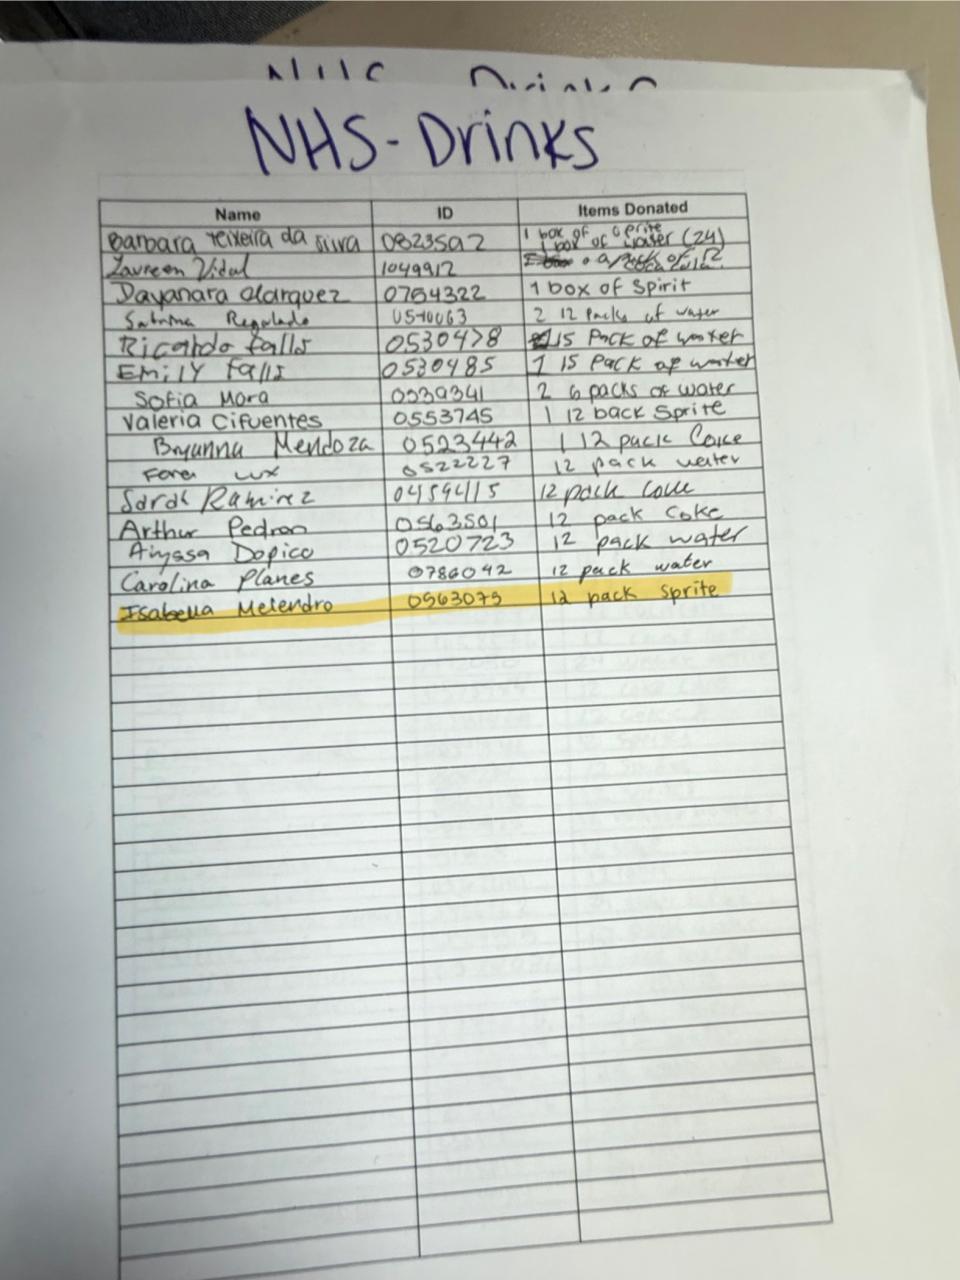 NHS - Drinks
Name ID Items Donated
Barbara Teixeira da silva 0823592 1 box of sprite
1 box of water (24)
Laureen Vidal 1049912
Dayanara Marquez 0754322 1 box of Spirit
Sabrina Regulado 2 12 packs of water
Ricardo falls 0530478 15 Pack of water
EMILY falls 0530485 1 15 Pack of water
Sofia Mora 0539341 2 6 packs of water
Valeria Cifuentes 0553745 1 12 back Sprite
Bryanna Mendoza 0523442 1 12 pack Coke
Lux 0522227 12 pack water
Sarah Ramirez 12 pack
Arthur Pedron 0563501 12 pack Coke
Dopico 0520723 12 pack water
Carolina Planes 0786042 12 pack water
Isabella Melendro 0563075 12 pack sprite